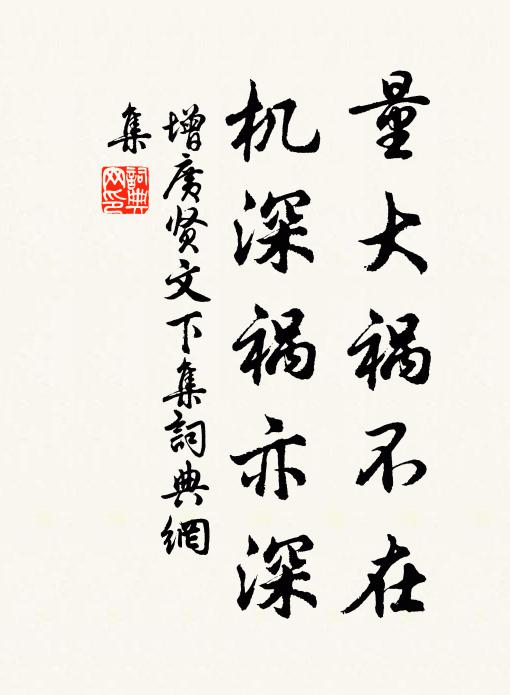 量大祸不在
机深祸亦深
增广贤文下集詞典網
集
詞典
网印